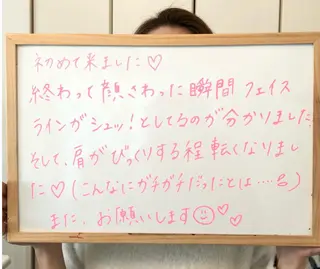 初めて来ました♡
終わって顔さわった瞬間フェイス
ラインがシュッ!としてるのが分かりました
そして、肩がびっくりする程軽くなりまし
た♡(こんなにガチガチだったとは…る)
また、お願いします☺♡♡